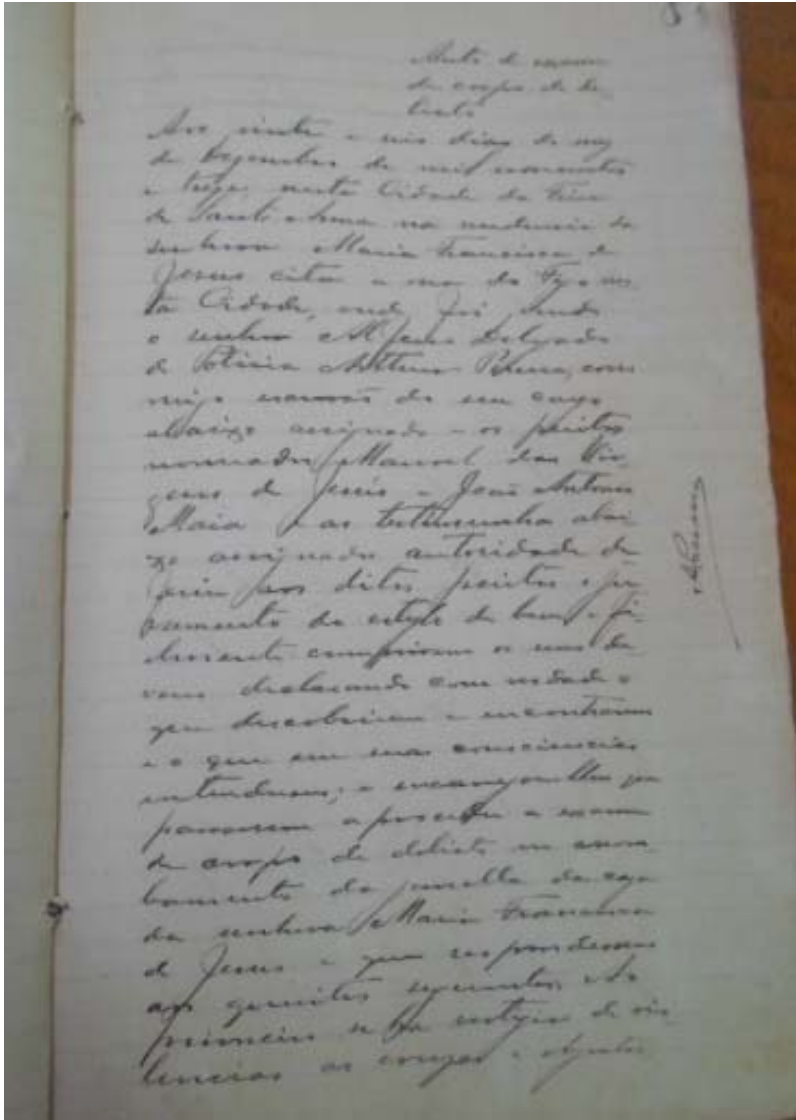 Auto de exame
de corpo de de
licto
Aos vinte e seis dias do mez
de Dezembro de mil novecentos
e treze nesta Cidade da Feira
de Sant Anna na residencia da
senhora Maria Francisca de
Jesus cita a rua do nes
ta Cidade, onde foi vindo
o senhor Delegado
de Policia Pereira, com
migo escrivão do seu cargo
abaixo assignado e os peritos
nomeados Manoel das Vir
gens de Jesus e João Antonio
Maia e as testemunha abai
xo assignadas autoridade de
ferio aos ditos peritos o ju
ramento de estylo de bem e fi
elmente cumprirem os seus de
veres declarando com verdade o
que descobrirem e encontrarem
e o que em suas consciencias
entenderem; e encarregou lhes que
passassem a proceder a exame
de corpo de delicto no arrom
bamento da janella da caza
da senhora Maria Francisca
de Jesus e que respondessem
aos quesitos seguintes: Ao
primeiro se ha vestigios de vio
lencias as cousas e objectos